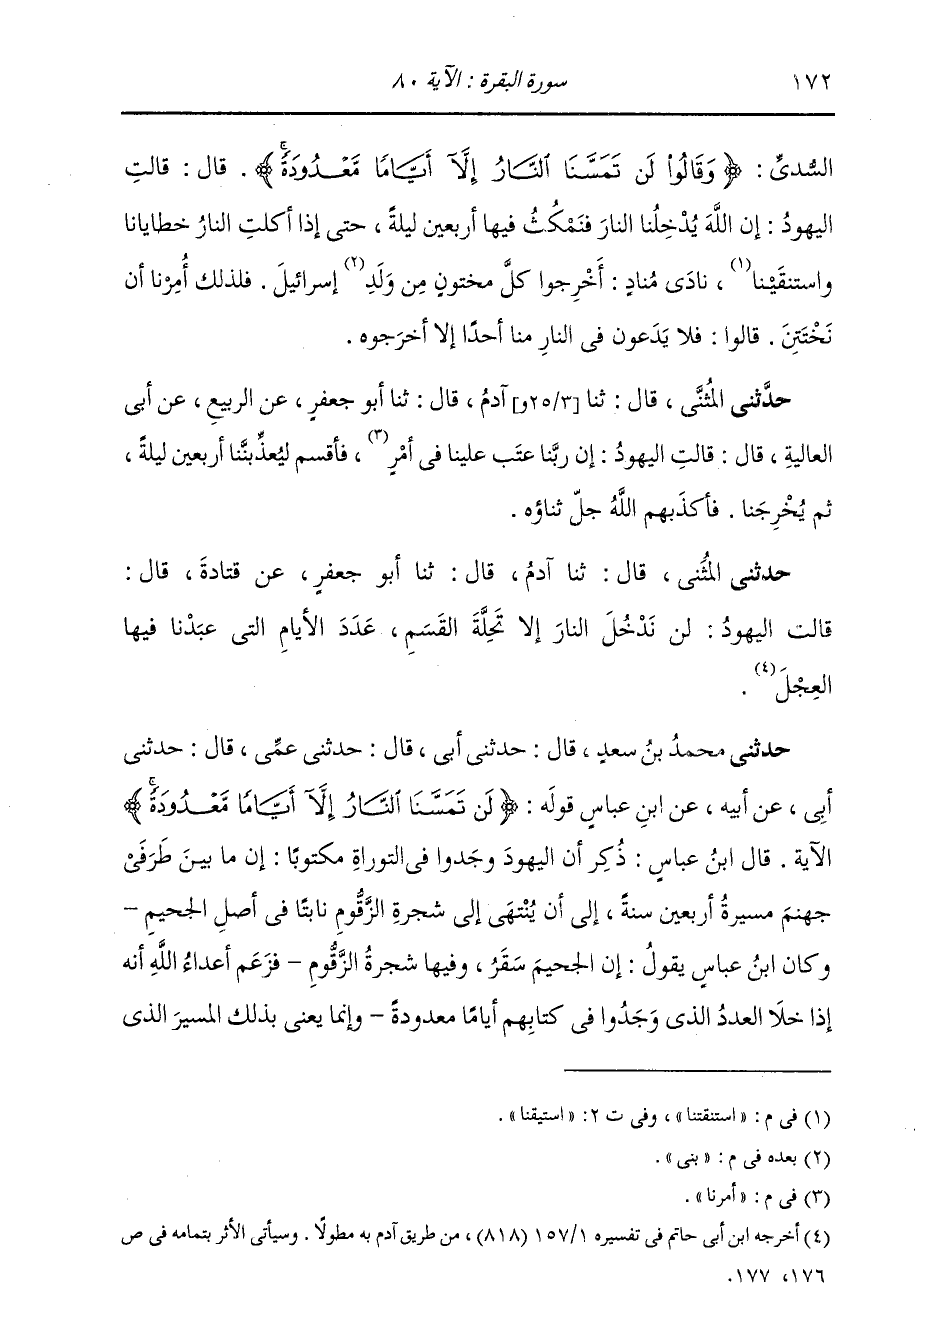 ١٧٢ سورة البقرة : الآية ٨٠
السُّدىِّ : ﴿ وَقَالُوا۟ لَن تَمَسَّنَا ٱلنَّارُ إِلَّآ أَيَّامًا مَّعْـدُودَةًۚ ﴾ . قال : قالتِ
اليهودُ : إن اللَّهَ يُدْخِلُنا النارَ فنَمْكُثُ فيها أربعين ليلةً ، حتى إذا أكلتِ النارُ خطايانا
واستنقَيْنا(١) ، نادَى مُنادٍ : أَخْرِجوا كلَّ مختونٍ مِن وَلَدِ(٢) إسرائيلَ . فلذلك أُمِرْنا أن
نَخْتَتِنَ . قالوا : فلا يَدَعون فى النارِ منا أحدًا إلا أخرَجوه .
حدَّثنى المُثنَّى ، قال : ثنا [٢٥/٣و] آدمُ ، قال : ثنا أبو جعفرٍ ، عن الربيعِ ، عن أبى
العاليةِ ، قال : قالتِ اليهودُ : إن ربَّنا عتَب علينا فى أمْرٍ(٣) ، فأقسم ليُعذِّبنَّنا أربعين ليلةً ،
ثم يُخْرِجَنا . فأكذَبهم اللَّهُ جلّ ثناؤه .
حدثنى المُثَّنى ، قال : ثنا آدمُ ، قال : ثنا أبو جعفرٍ ، عن قتادةَ ، قال :
قالت اليهودُ : لن نَدْخُلَ النارَ إلا تَحِلَّةَ القَسَمِ ، عَدَدَ الأيامِ التى عبَدْنا فيها
العِجْلَ(٤) .
حدثنى محمدُ بنُ سعدٍ ، قال : حدثنى أبى ، قال : حدثنى عمِّى ، قال : حدثنى
أبِى ، عن أبيه ، عن ابنِ عباسٍ قولَه : ﴿ لَن تَمَسَّنَا ٱلنَّارُ إِلَّآ أَيَّامًا مَّعْـدُودَةًۚ ﴾
الآية . قال ابنُ عباسٍ : ذُكِر أن اليهودَ وجَدوا فى التوراةِ مكتوبًا : إن ما بينَ طَرَفَىْ
جهنمَ مسيرةُ أربعين سنةً ، إلى أن يُنْتهَى إلى شجرةِ الزَّقُّومِ نابتًا فى أصلِ الجحيمِ –
وكان ابنُ عباسٍ يقولُ : إن الجحيمَ سَقَرُ ، وفيها شجرةُ الزَّقُّومِ – فزَعَم أعداءُ اللَّهِ أنه
إذا خلَا العددُ الذى وَجَدُوا فى كتابِهم أيامًا معدودةً – وإنما يعنى بذلك المسيرَ الذى
(١) فى م : « استنقتنا » ، وفى ت ٢ : « استيقنا » .
(٢) بعده فى م : « بنى » .
(٣) فى م : « أمرنا » .
(٤) أخرجه ابن أبى حاتم فى تفسيره ١٥٧/١ (٨١٨) ، من طريق آدم به مطولًا . وسيأتى الأثر بتمامه فى ص
١٧٦، ١٧٧.